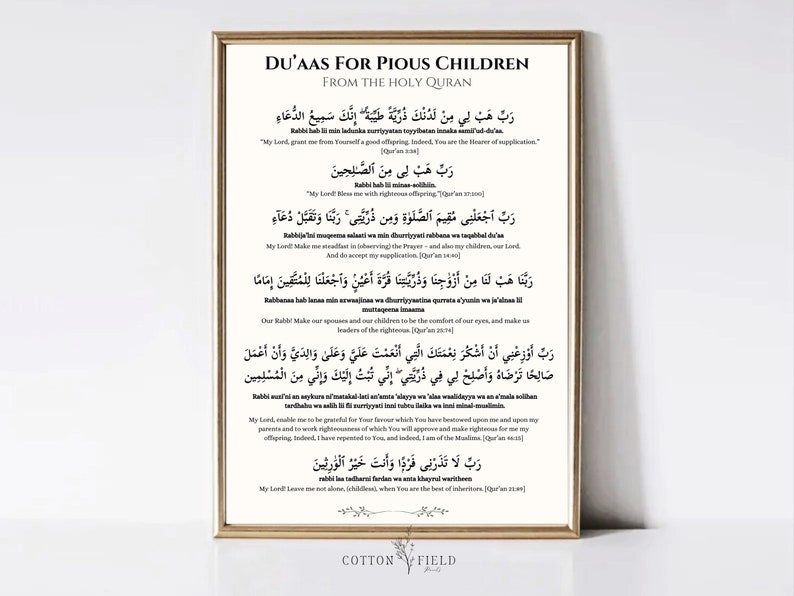 Du'aas For Pious Children
From the holy Quran
رَبِّ هَبْ لِي مِنْ لَدُنْكَ ذُرِّيَّةً طَيِّبَةً ۖ إِنَّكَ سَمِيعُ الدُّعَاءِ
Rabbi hab lii min ladunka zurriyyatan toyyibatan innaka samii'ud-du'aa.
"My Lord, grant me from Yourself a good offspring. Indeed, You are the Hearer of supplication."
[Qur'an 3:38]
رَبِّ هَبْ لِى مِنَ ٱلصَّـٰلِحِينَ
Rabbi hab lii minas-solihiin.
"My Lord! Bless me with righteous offspring."[Qur'an 37:100]
رَبِّ ٱجْعَلْنِى مُقِيمَ ٱلصَّلَوٰةِ وَمِن ذُرِّيَّتِى ۚ رَبَّنَا وَتَقَبَّلْ دُعَآءِ
Rabbija'lni muqeema salaati wa min dhurriyyati rabbana wa taqabbal du'aa
My Lord! Make me steadfast in (observing) the Prayer – and also my children, our Lord.
And do accept my supplication. [Qur'an 14:40]
رَبَّنَا هَبْ لَنَا مِنْ أَزْوَٰجِنَا وَذُرِّيَّـٰتِنَا قُرَّةَ أَعْيُنٍۢ وَٱجْعَلْنَا لِلْمُتَّقِينَ إِمَامًا
Rabbanaa hab lanaa min azwaajinaa wa dhurriyyaatinaa qurrata a'yunin wa ja'alnaa lil
muttaqeena imaama
Our Rabb! Make our spouses and our children to be the comfort of our eyes, and make us
leaders of the righteous. [Qur'an 25:74]
رَبِّ أَوْزِعْنِي أَنْ أَشْكُرَ نِعْمَتَكَ الَّتِي أَنْعَمْتَ عَلَيَّ وَعَلَىٰ وَالِدَيَّ وَأَنْ أَعْمَلَ
صَالِحًا تَرْضَاهُ وَأَصْلِحْ لِي فِي ذُرِّيَّتِي ۖ إِنِّي تُبْتُ إِلَيْكَ وَإِنِّي مِنَ الْمُسْلِمِينَ
Rabbi auzi'ni an asykura ni'matakal-lati an'amta 'alayya wa 'alaa waalidayya wa an a'mala solihan
tardhahu wa aslih lii fii zurriyyati inni tubtu ilaika wa inni minal-muslimin.
My Lord, enable me to be grateful for Your favour which You have bestowed upon me and upon my
parents and to work righteousness of which You will approve and make righteous for me my
offspring. Indeed, I have repented to You, and indeed, I am of the Muslims. [Qur'an 46:15]
رَبِّ لَا تَذَرْنِى فَرْدًۭا وَأَنتَ خَيْرُ ٱلْوَٰرِثِينَ
rabbi laa tadharni fardan wa anta khayrul waritheen
My Lord! Leave me not alone, (childless), when You are the best of inheritors. [Qur'an 21:89]
COTTON FIELD
Prints